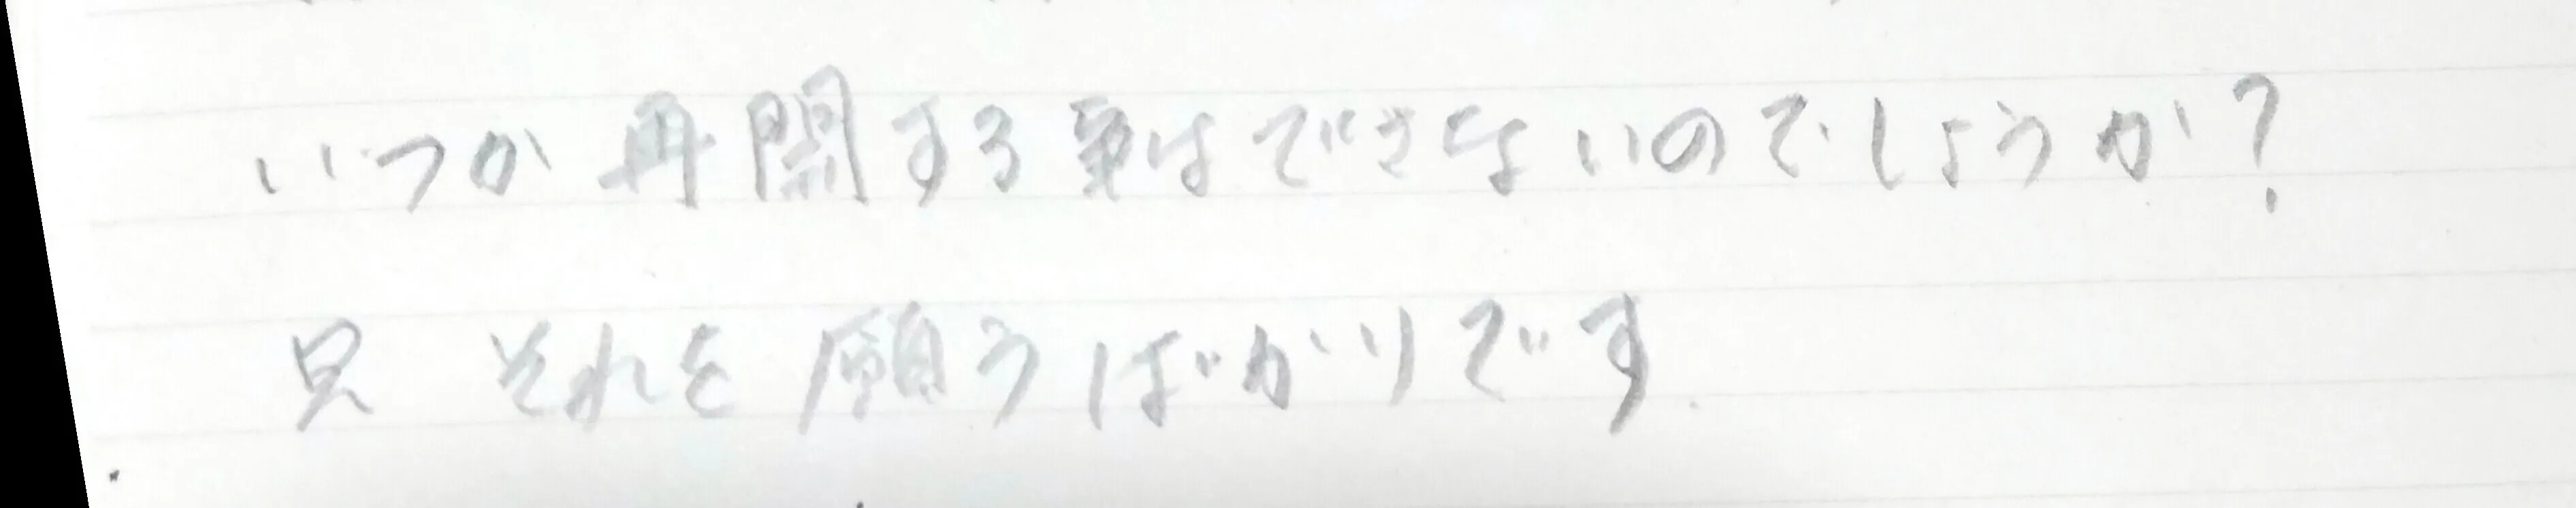 いつか再開する事はできないのでしょうか?
只 それを願うばかりです.